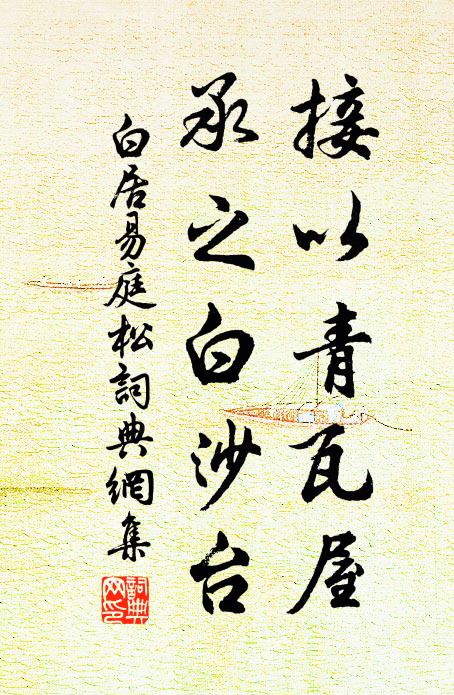 接以青瓦屋
承之白沙台
白居易庭松詞典網集
詞典
网印